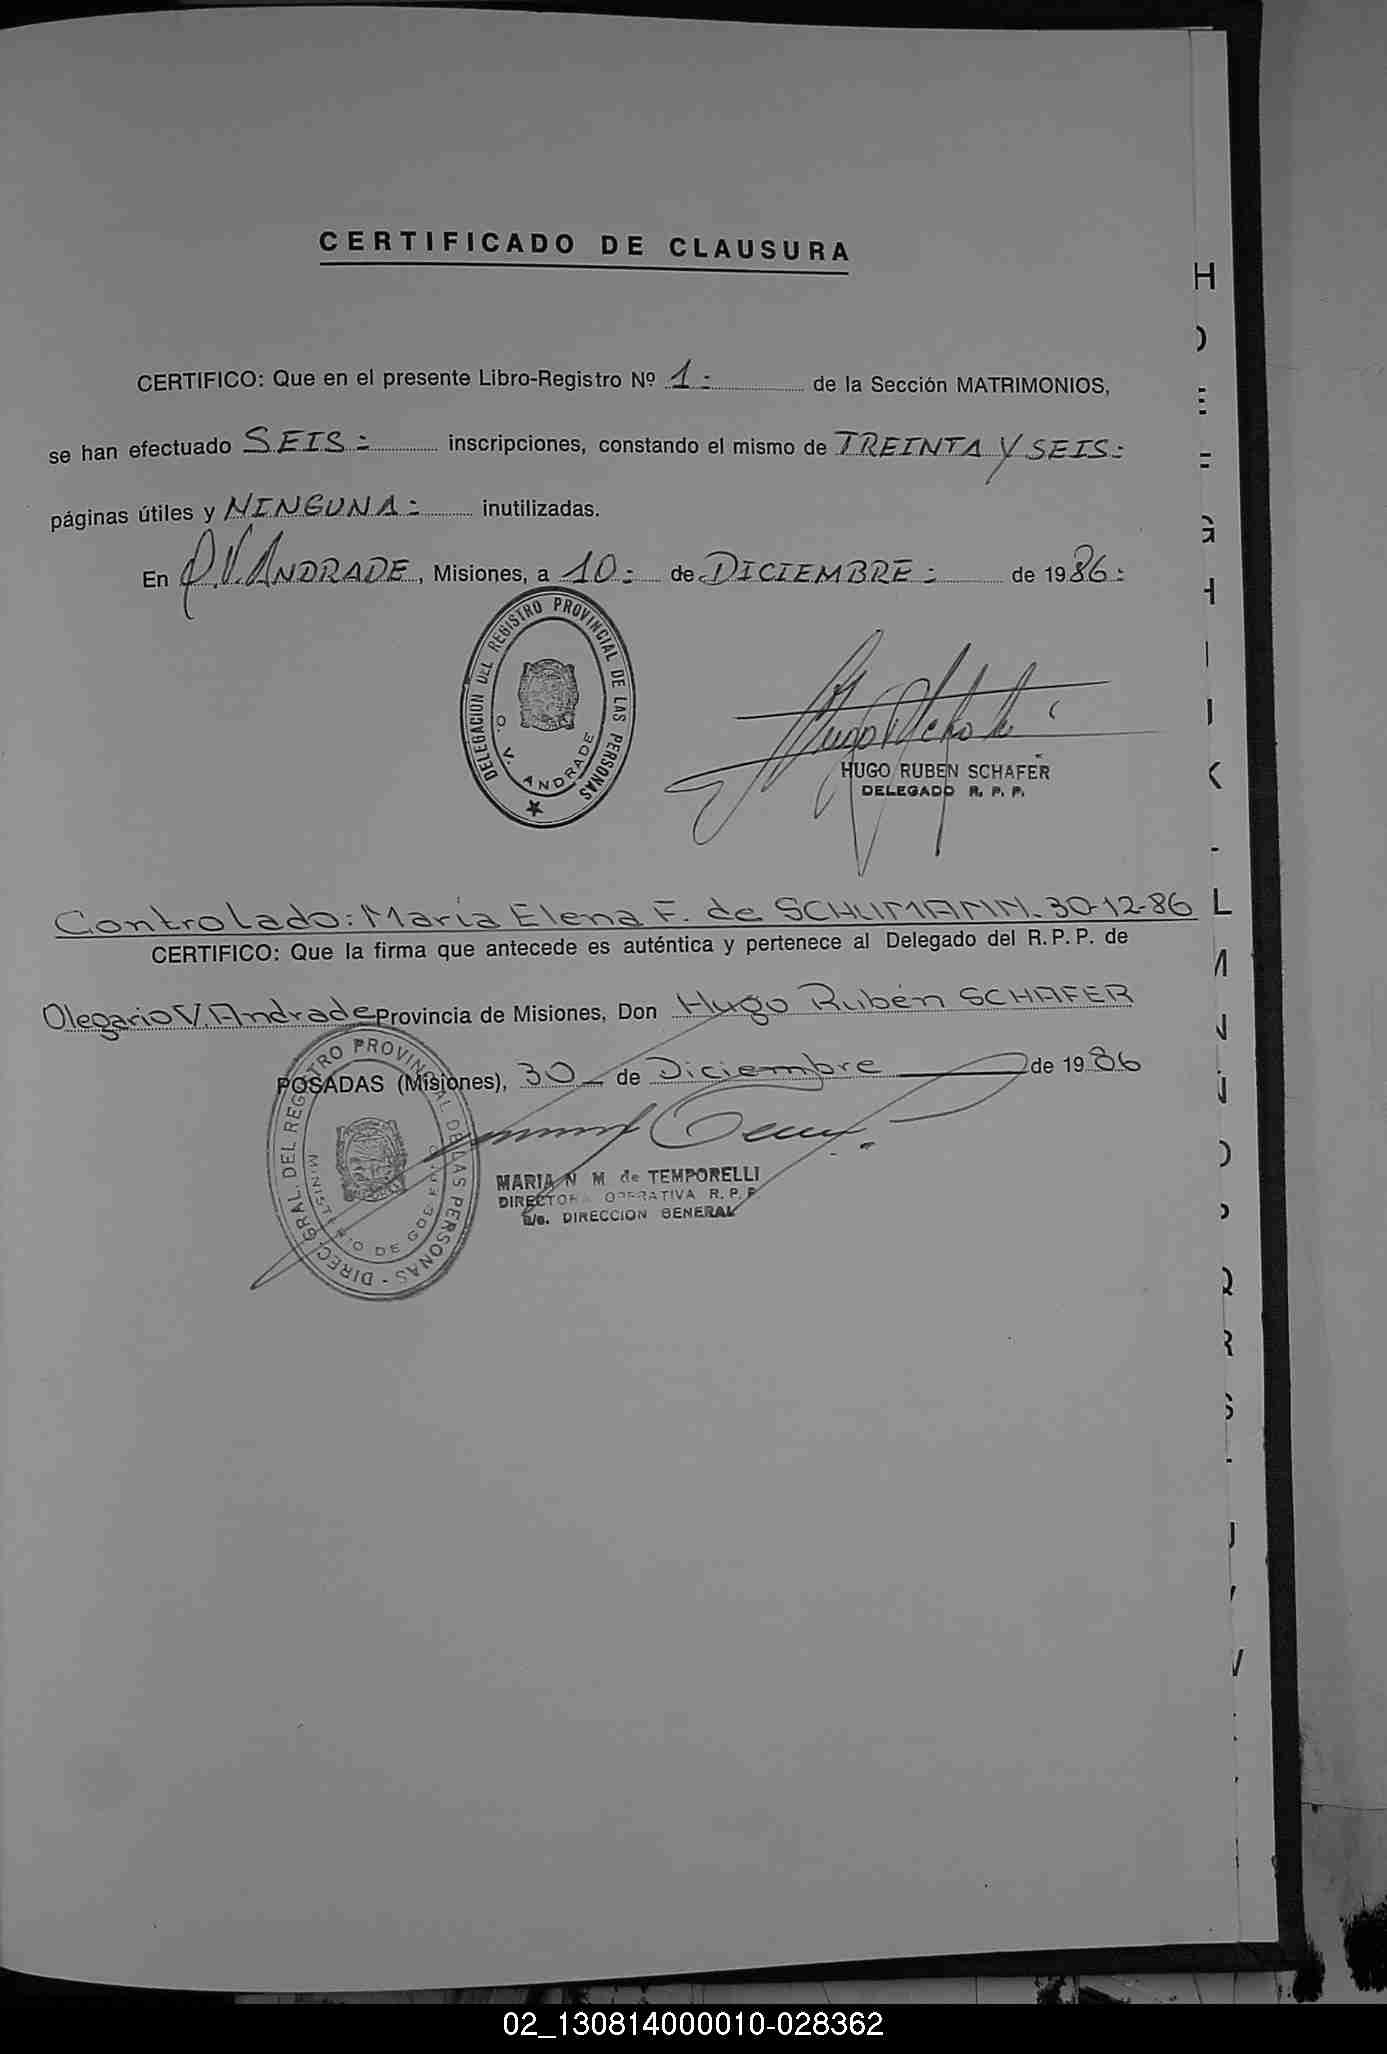 CERTIFICADO DE CLAUSURA
CERTIFICO: Que en el presente Libro-Registro Nº 1.- de la Sección MATRIMONIOS,
se han efectuado SEIS.- inscripciones, constando el mismo de TREINTA Y SEIS.-
páginas útiles y NINGUNA.- inutilizadas.
En O.V. ANDRADE, Misiones, a 10.- de DICIEMBRE.- de 1986.-
DELEGACION DEL REGISTRO PROVINCIAL DE LAS PERSONAS
O. V. ANDRADE
HUGO RUBEN SCHAFER
DELEGADO R. P. P.
Controlado: María Elena F. de SCHUMANN. 30-12-86
CERTIFICO: Que la firma que antecede es auténtica y pertenece al Delegado del R. P. P. de
Olegario V. Andrade Provincia de Misiones, Don Hugo Rubén SCHAFER
POSADAS (Misiones), 30 de Diciembre de 1986
DIREC. GRAL. DEL REGISTRO PROVINCIAL DE LAS PERSONAS
MINISTERIO DE GOB.
MARIA N M de TEMPORELLI
DIRECTORA OPERATIVA R. P. P.
a/c. DIRECCION GENERAL
H
E
F
G
H
I
K
L
M
N
O
Q
R
S
U
V
02_130814000010-028362